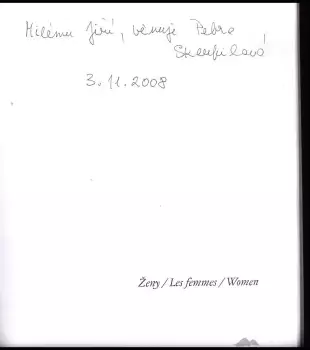 Milému Jiří, venuje Petra
Skoupilová
3. 11. 2008
Ženy / Les femmes / Women